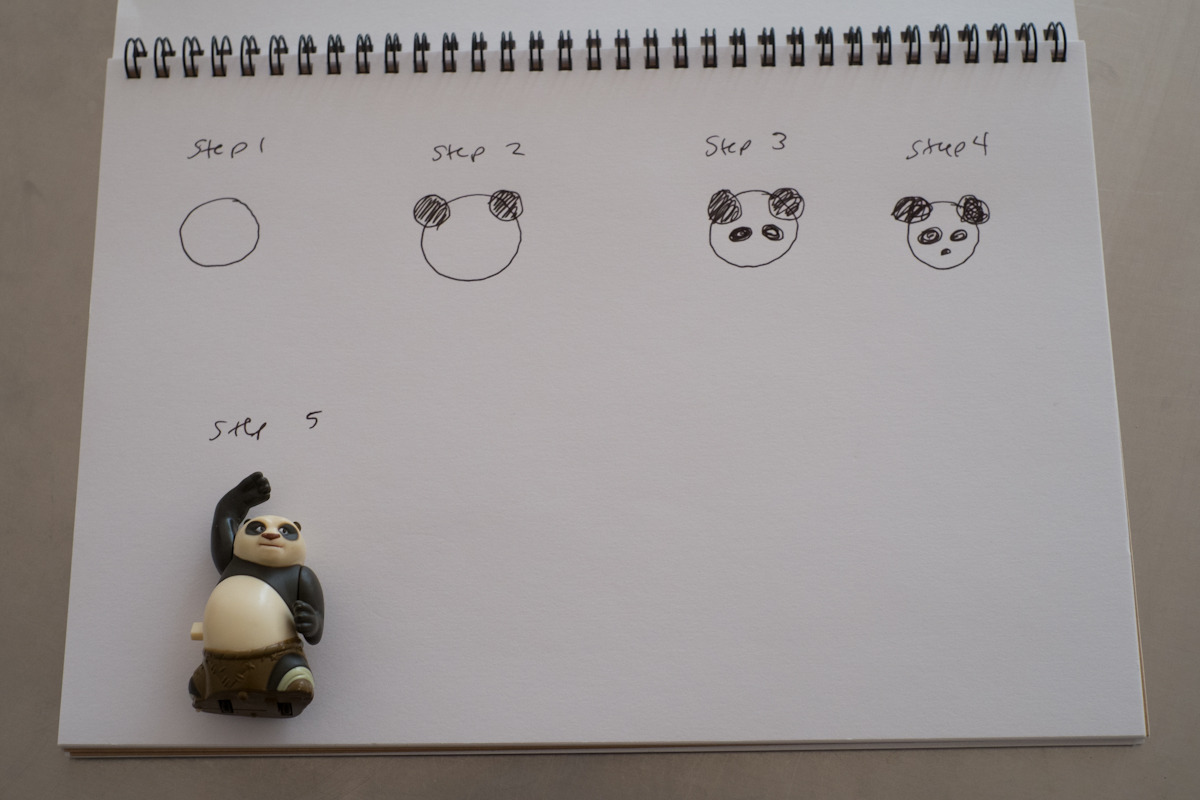 Step 1
Step 2
Step 3
Step 4
Step 5